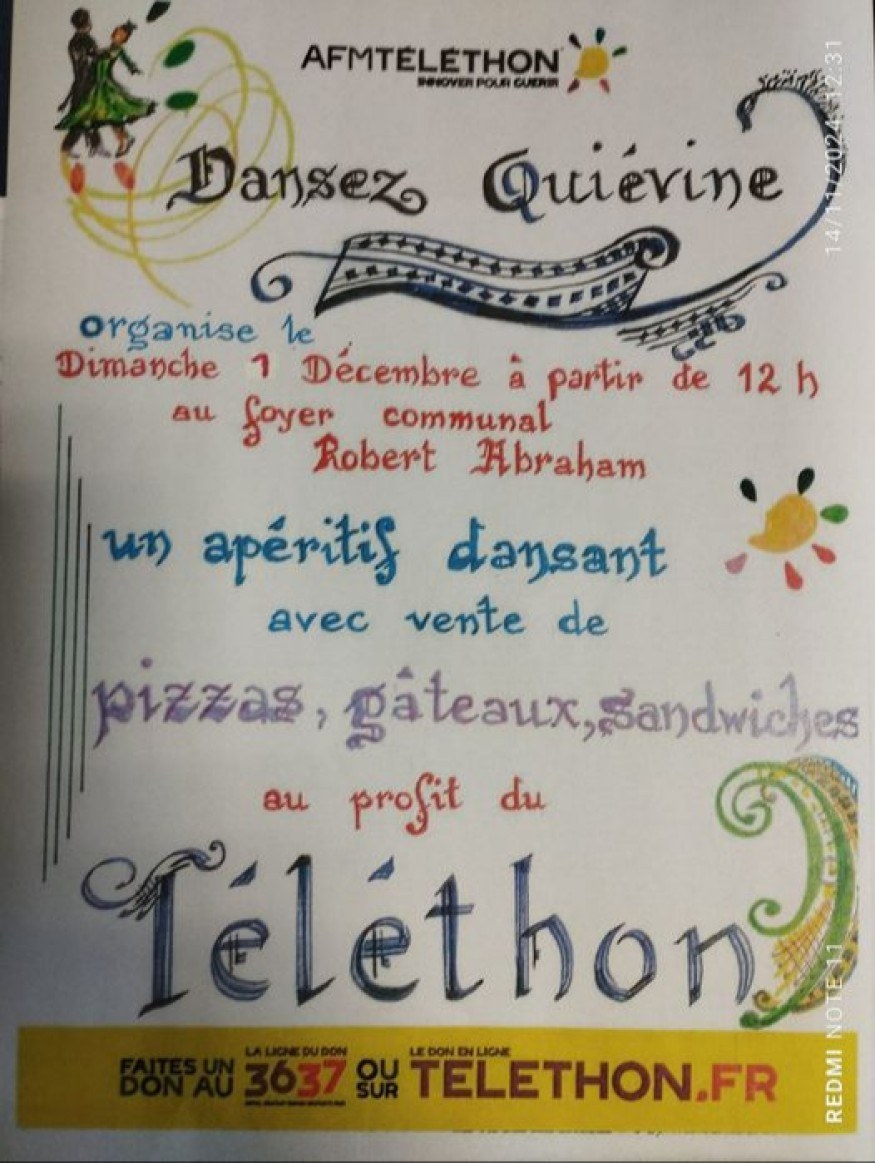 AFMTÉLÉTHON
INNOVER POUR GUÉRIR
Dansez Quiévine
organise le
Dimanche 1 Décembre à partir de 12 h
au foyer communal
Robert Abraham
un apéritif dansant
avec vente de
pizzas, gâteaux, sandwiches
au profit du
Téléthon
FAITES UN DON AU
LA LIGNE DU DON
3637
OU SUR
LE DON EN LIGNE
TELETHON.FR
14/11/2024 12:31
REDMI NOTE 11